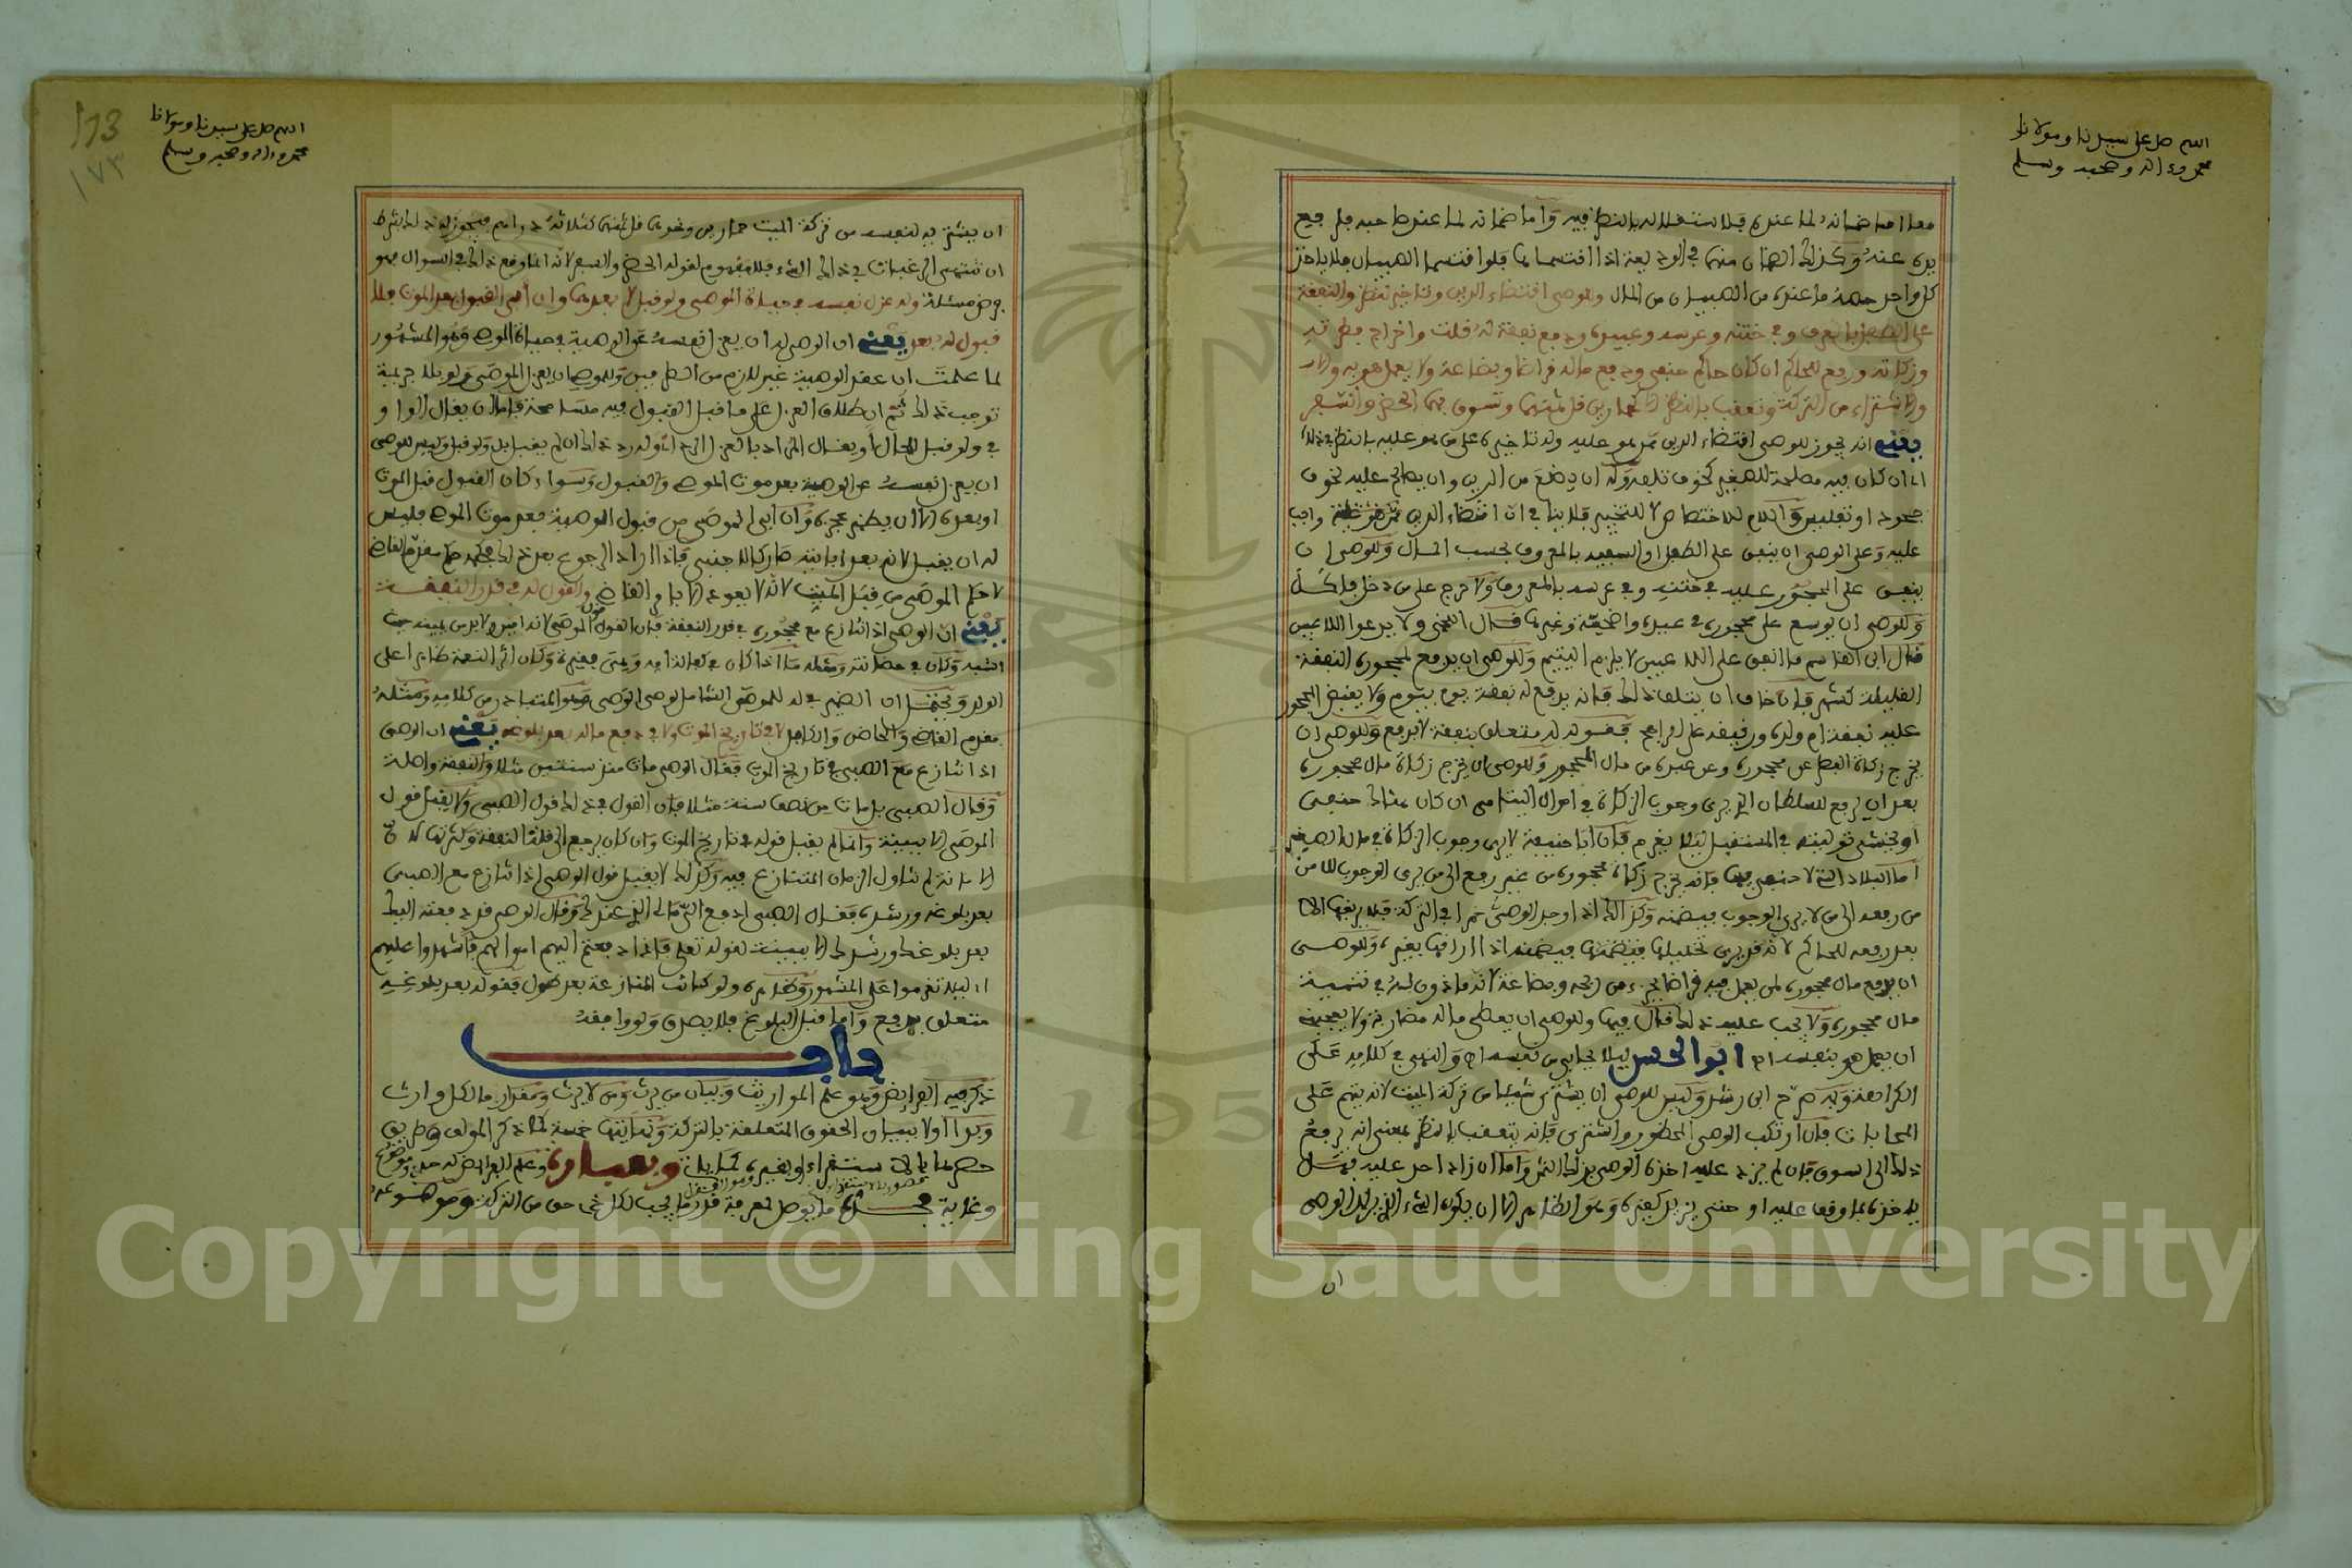 اللهم صل على سيدنا ومولانا
محمد وءاله وصحبه وسلم
معا اما ضمانه لما عنده فلاستقلاله بالنظر فيه واما ضمانه لما عند صاحبه فلرفع
يده عنه وكذلك الضمان منهما في الوديعة اذا اقتسماها فلو اقتسما الصبيان فلا ياخذ
كل واحد حصة ما عنده من الصبيان من المال وللوصي اقتضاء الدين وتاخيره لنظر والنفقة
على الطفل بالعرف وفي ختنه وعرسه وعيده ودفع نفقة له قلت واخراج فطرته
وزكاته ورفع للحاكم ان كان حاكم حنفي ودفع ماله قراضا وبضاعة ولا يعمل هو به ولا
ولا اشتراء من التركة وتعقب بالنظر الا كحمارين قل ثمنهما وتسوق بهما الحضر والسفر
يعني انه يجوز للوصي اقتضاء الدين ممن هو عليه وله تاخيره على من هو عليه بالنظر في ذلك
ان كان فيه مصلحة للصغير كخوف تلفه وله ان يضع من الدين وان يصالح عليه لخوف
جحود او تفليس واللام للاختصاص لا للتخيير فلا ينافي ان اقتضاء الدين واجب
عليه وعلى الوصي ان ينفق على الطفل او السفيه بالمعروف بحسب المال وللوصي ان
ينفق على المحجور عليه في ختنه وفي عرسه بالمعروف ولا حرج على من دخل فاكل
وللوصي ان يوسع على محجوره في عيده واضحيته وغيرها قال اللخمي ولا يدعو اللاعبين
قال ابن القاسم ما انفق على اللاعبين لا يلزم اليتيم وللوصي ان يدفع لمحجوره النفقة
القليلة كشهر فان خاف ان يتلف ذلك فانه يدفع له نفقة يوم بيوم ولا يقبض المحجور
عليه نفقة ام ولده ورقيقه على الراجح فقوله له متعلق بنفقة لا بدفع وللوصي ان
يخرج زكاة الفطر عن محجوره وعن عبده من مال المحجور وللوصي ان يخرج زكاة مال محجوره
بعد ان يرفع للسلطان الذي يرى وجوب الزكاة في اموال اليتامى ان كان هناك حنفي
او يخشى توليته في المستقبل ليلا يغرم فان ابا حنيفة لا يرى وجوب الزكاة في مال الصغير
اما البلاد التي لا حنفي فيها فانه يخرج زكاة محجوره من غير رفع الى من يرى الوجوب للامن
من رفعه الى من لا يرى الوجوب فيضمنه وكذلك اذا وجد الوصي خمرا في التركة فلا يريقها الا
بعد رفعه للحاكم لانه قد يرى تخليلها فيضمنها فيضمنه اذا اراقها بغيره وللوصي
ان يدفع مال محجوره لمن يعمل فيه قراضا بجزء من ربحه وبضاعة لانه ماذون له في تنمية
مال محجوره ولا يجب عليه ذلك قال فيها وللوصي ان يعطي ماله مضاربة ولا يعجبني
ان يعمل هو بنفسه اه ابو الحسن ليلا يحابي من نفسه اه والنهي في كلامه على
الكراهة وبه صرح ابن رشد وليس للوصي ان يشتري شيئا من تركة الميت لانه يتهم على
المحاباة فان ارتكب الوصي المحظور واشترى فانه يتعقب بالنظر بمعنى انه يرفع
ذلك الى السوق فان لم يزد عليه اخذه الوصي بذلك الثمن واما ان زاد احد عليه فهل
ياخذه بما وقف عليه او حتى يزيد كغيره وهو الظاهر الا ان يكون الشيء الذي يريد الوصي
ان
173
١٧٣
اللهم صل على سيدنا ومولانا
محمد وءاله وصحبه وسلم
ان يشتريه لنفسه من تركة الميت حمارين ونحوهما قل ثمنهما كثلاثة دراهم فيجوز له ذلك بشرط
ان تنتهي الرغبات في ذلك الشيء فلا مفهوم لقوله الحضر والسفر لانه انما وقع ذلك في السوال فهو
فرض مسئلة وله عزل نفسه في حياة الموصي ولو قبل لا بعدهما وان ابى القبول بعد الموت فلا
قبول له بعد يعني ان الوصي له ان يعزل نفسه عن الوصية في حياة الموصي وهو المشهور
لما علمت ان عقد الوصية غير لازم من الطرفين وللموصي ان يعزل الموصى ولو بلا جريمة
توجب ذلك ثم ان اطلاق العزل على ما قبل القبول فيه مسامحة فاما ان يقال الواو
في ولو قبل للحال او يقال المراد بالعزل الرد اي وله رد ذلك ان لم يقبل بل ولو قبل وليس للوصي
ان يعزل نفسه عن الوصية بعد موت الموصي والقبول وسواء كان القبول قبل الموت
او بعده الا ان يظهر عجزه وان ابى الموصى من قبول الوصية بعد موت الموصي فليس
له ان يقبل لانه بعد ابايته صار كالاجنبي فاذا اراد الرجوع بعد ذلك فحكمه حكم مقدم القاضي
لا حكم الموصى من قبل الميت لانه لا يعود الا بامر القاضي والقول له في قدر النفقة
يعني ان الوصي اذا تنازع مع محجوره في قدر النفقة فان القول قول الموصى لانه امين ولابد من يمينه حيث
اشبه وكان في حضانته ومثله ما اذا كان في كفالة امه وهي فقيرة وكان اثر النعمة ظاهرا على
الولد ويحتمل ان الضمير في له للموصى الشامل لوصي الوصي وهو المتبادر من كلامه ومثله
مقدم القاضي والحاضن والكافل لا في تاريخ الموت ولا في دفع ماله بعد بلوغه يعني ان الوصي
اذا تنازع مع الصبي في تاريخ الموت فقال الوصي مات منذ سنتين مثلا والنفقة واصلة
وقال الصبي بل مات من نصف سنة مثلا فان القول في ذلك قول الصبي ولا يقبل قول
الموصى الا ببينة وانما لم يقبل قوله في تاريخ الموت وان كان يرجع الى قلة النفقة وكثرتها لان
الامانة لم تتناول الزمان المتنازع فيه وكذلك لا يقبل قول الوصي اذا تنازع مع الصبي
بعد بلوغه ورشده فقال الصبي ادفع الي مالي الذي عندك وقال الوصي قد دفعته اليك
بعد بلوغك ورشدك الا ببينة لقوله تعلى فاذا دفعتم اليهم اموالهم فاشهدوا عليهم
اي ليلا تغرموا على المشهور وظاهره ولو كانت المنازعة بعد طول فقوله بعد بلوغه
متعلق بدفع واما قبل البلوغ فلا يصدق ولو وافقه
باب
ذكر فيه الفرايض وهو علم المواريث وبيان من يرث ومن لا يرث ومقدار ما لكل وارث
وبدا اولا ببيان الحقوق المتعلقة بالتركة وغايتها خمسة كما ذكر المولف وطريق
حصرها بالاستقراء او بغيره كما يان وبعبارة وعلم الفرايض له حد وموضوع
وغاية ما يوصل لمعرفة قدر ما يجب لكل ذي حق من التركة وموضوعه